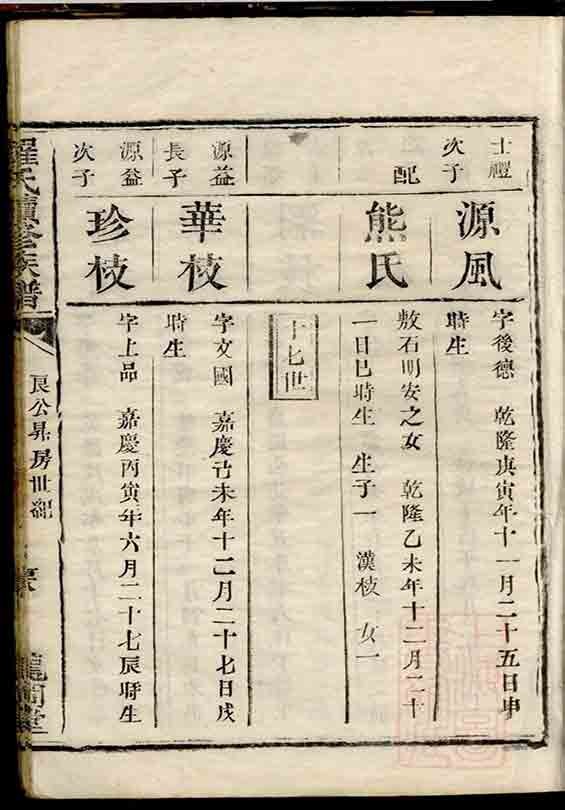 士禮
次子
源風
字後德 乾隆庚寅年十一月二十五日申
時生
配
熊氏
敖石明安之女 乾隆乙未年十二月二十
一日巳時生 生子一 漢枝 女一
十七世
源益
長子
華枝
字文國 嘉慶己未年十二月二十七日戌
時生
源益
次子
珍枝
字上品 嘉慶丙寅年六月二十七辰時生
羅氏續修族譜
艮公昇房世紀